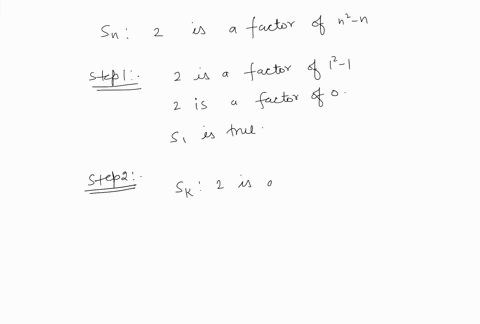 Sn : 2 is a factor of n²-n
Step1:. 2 is a factor of 1²-1
2 is a factor of 0.
S₁ is true.
Step2:. Sₖ : 2 is